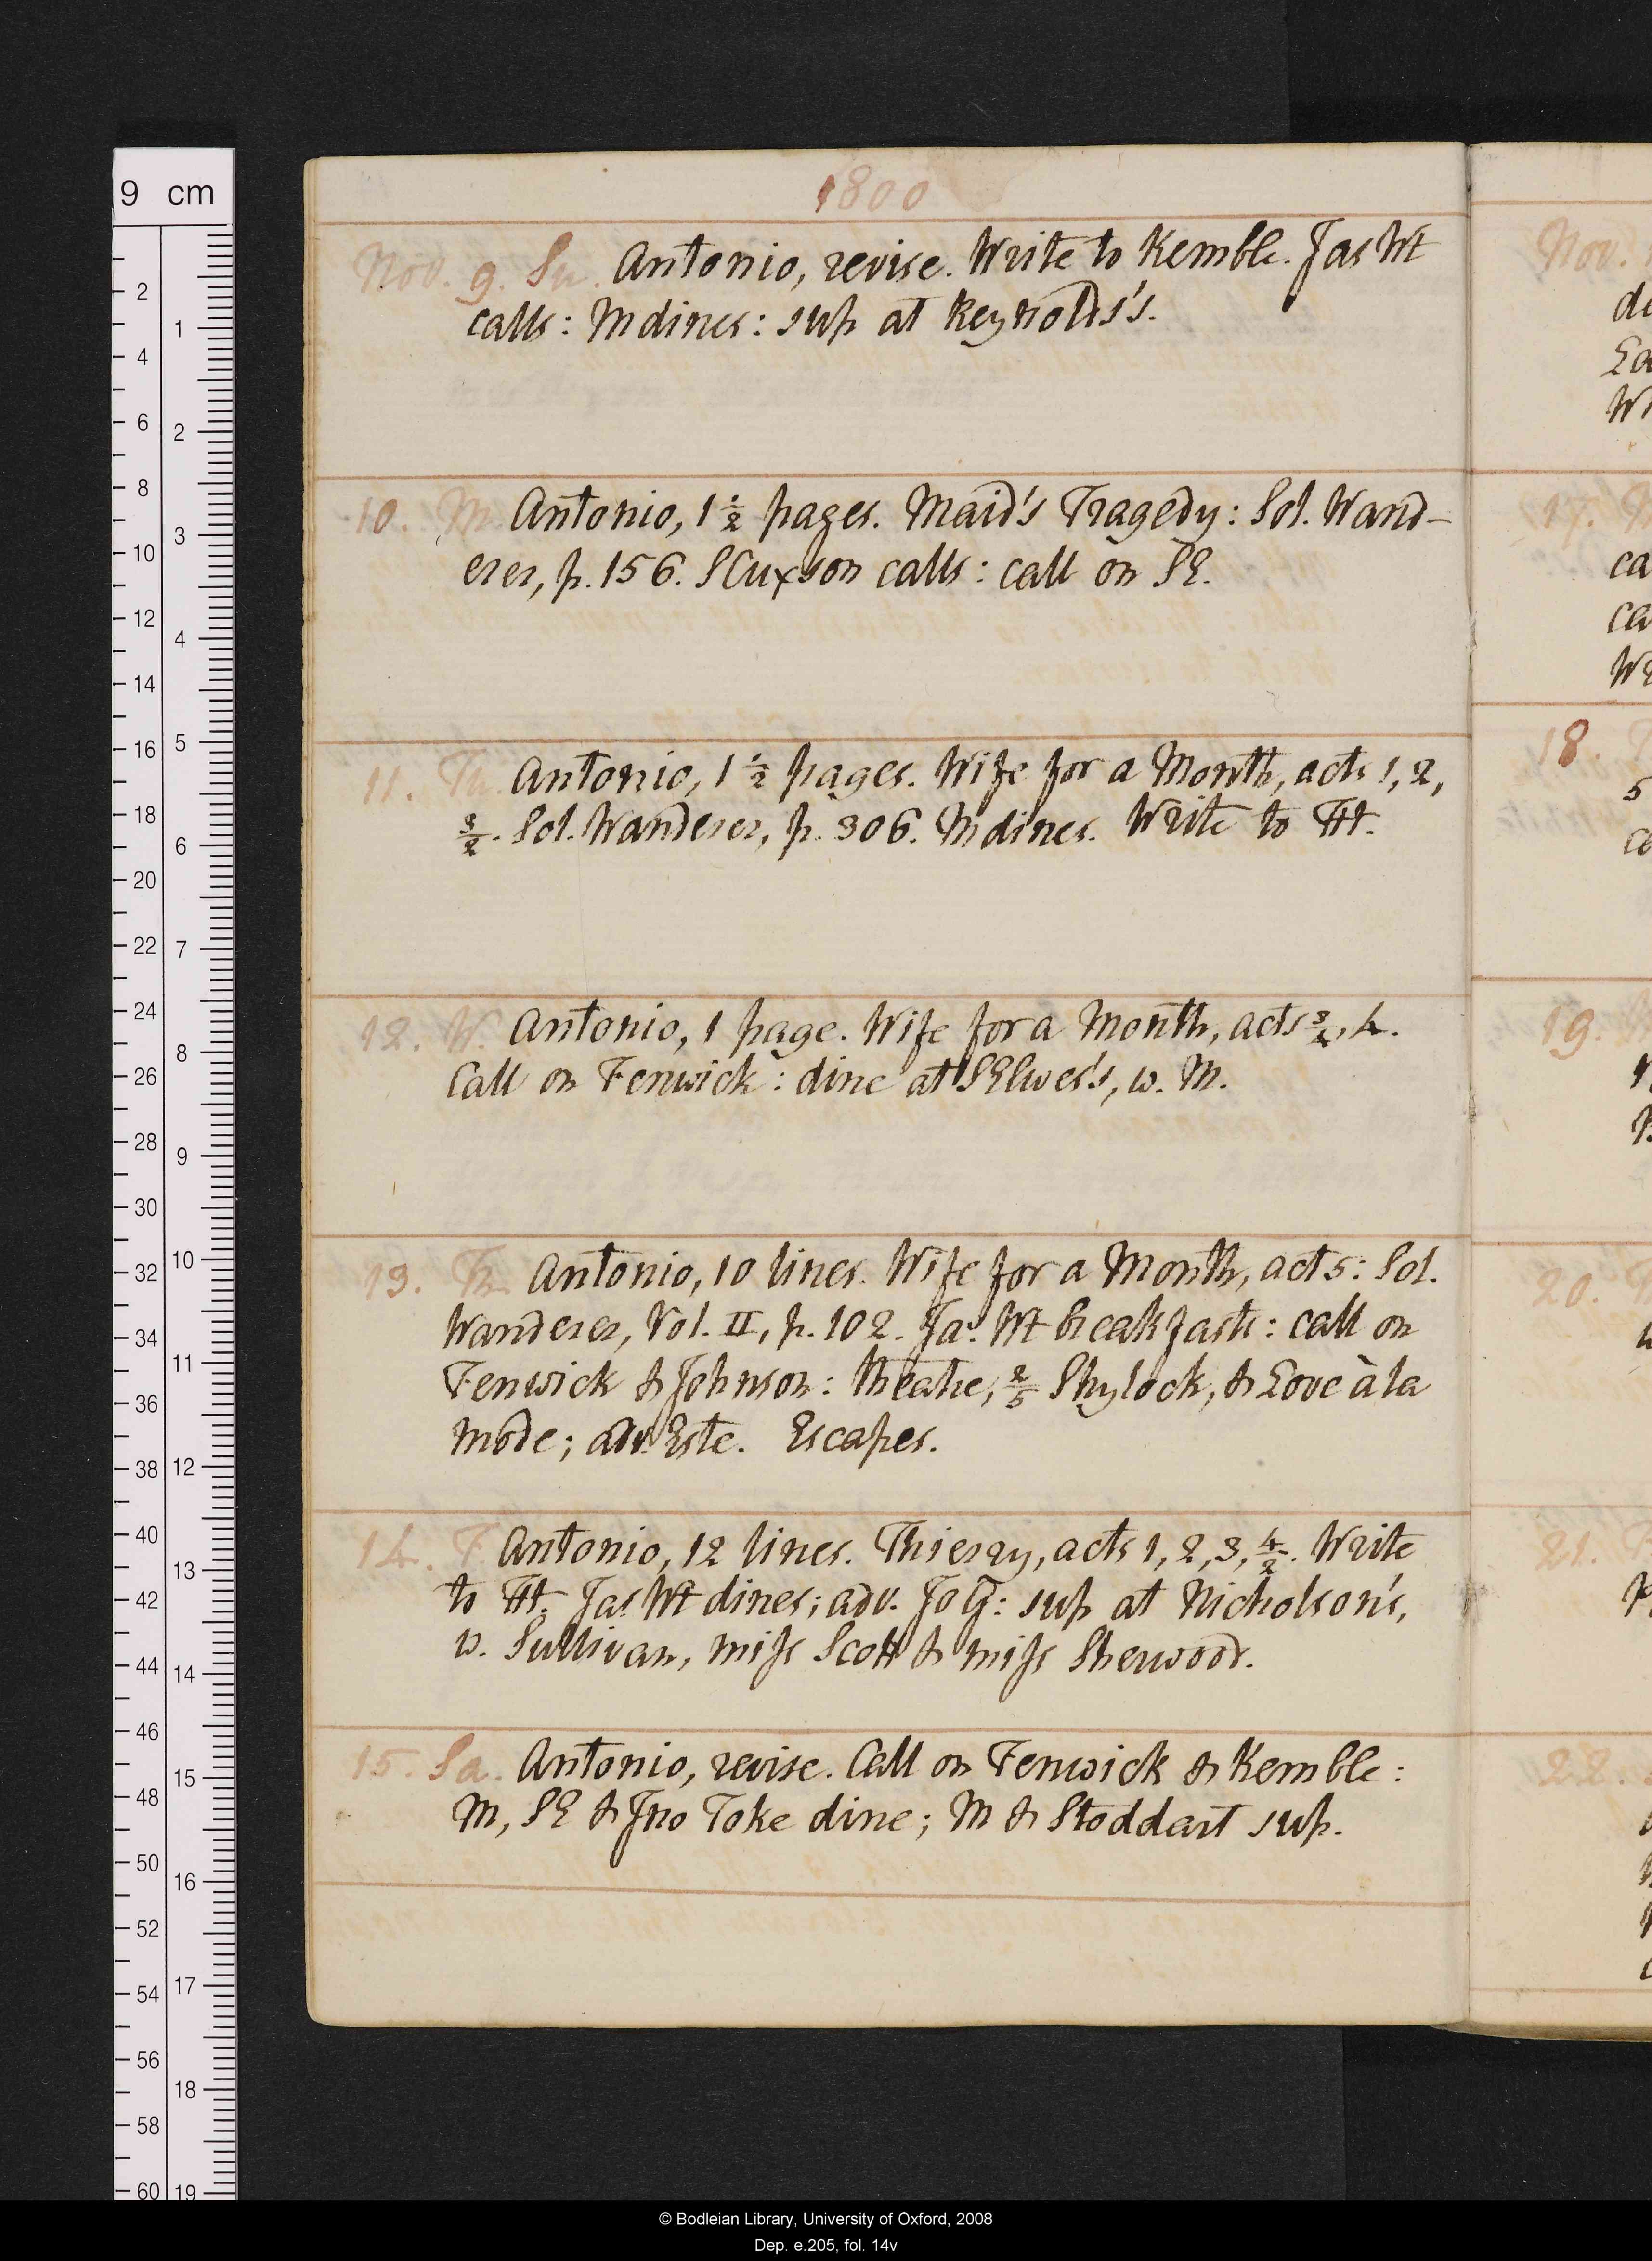 1800
Nov. 9. Su. Antonio, revise. Write to Kemble. Jas Wt
calls: M dines: sup at Reynolds's.
10. M. Antonio, 1 1/2 pages. Maid's Tragedy: Sol. Wand-
erer, p. 156. S Cuxson calls: call on SE.
11. Tu. Antonio, 1 1/2 pages. Wife for a Month, acts 1, 2,
3/2. Sol. Wanderer, p. 306. M dines. Write to Ht.
12. W. Antonio, 1 page. Wife for a Month, acts 3/4, 4.
Call on Fenwick: dine at S Elwes's, w. M.
13. Th. Antonio, 10 lines. Wife for a Month, act 5: Sol.
Wanderer, Vol. II, p. 102. Jas. Wt breakfasts: call on
Fenwick & Johnson: theatre, 2/5 Shylock, & Love à la
mode; adv. Este. Escapes.
14. F. Antonio, 12 lines. Thierry, acts 1, 2, 3, 4/2. Write
to Ht. Jas. Wt dines; adv. Jo G: sup at Nicholson's,
w. Sullivan, miss Scott & miss Sherwood.
15. Sa. Antonio, revise. Call on Fenwick & Kemble:
M, SE & Jno Toke dine; M & Stoddart sup.
Nov.
di
La
17.
ca
ca
18.
5
ce
19.
20.
21.
22.
9 cm
2
4
6
8
10
12
14
16
18
20
22
24
26
28
30
32
34
36
38
40
42
44
46
48
50
52
54
56
58
60
1
2
3
4
5
6
7
8
9
10
11
12
13
14
15
16
17
18
19
© Bodleian Library, University of Oxford, 2008
Dep. e.205, fol. 14v